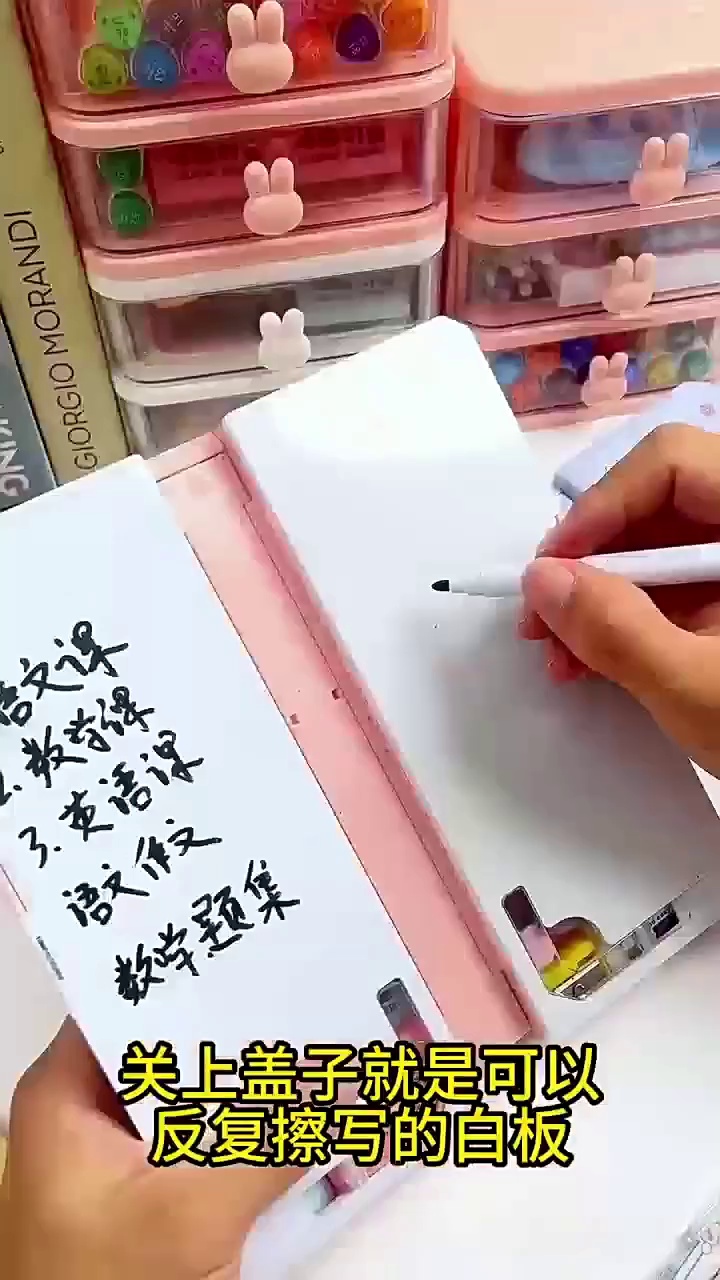 GIORGIO MORANDI
KING
语文课
2. 数学课
3. 英语课
语文作文
数学题集
关上盖子就是可以
反复擦写的白板